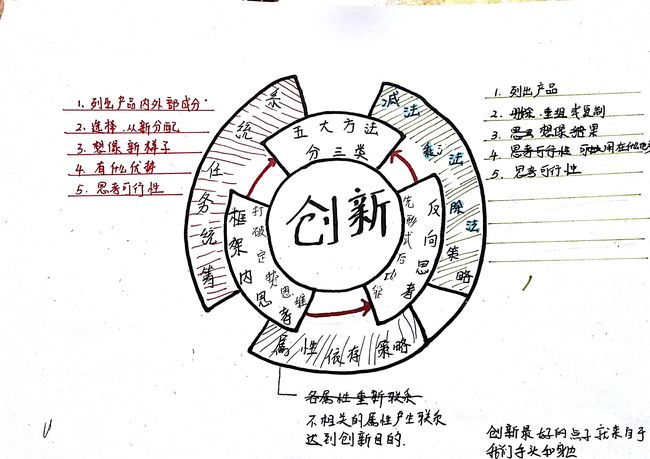 1. 列出产品内外部成分.
2. 选择.从新分配
3. 想像新样子
4. 有什么优势
5. 思考可行性
1. 列出产品
2. 删除.重组或复制
3. 想像效果
4. 思考可行性
5. 思考可行性
系统任务统筹
减法
乘法
除法
策略
五大方法
分三类
创新
框架内思考
打破定势思维
反向思考
先形式后功能
属性依存策略
各属性重新联系
不相关的属性产生联系
达到创新目的.
创新最好的点子就来自于
我们手头和身边